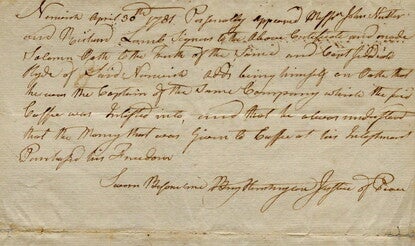 Norwich April 30th 1781 Personally appeared Messrs John Nutter
and Richard Lamb Signers to the Above Certificate and made
Solemn Oath to the Truth of the Same and Capt
Hyde of Said Norwich adds being himself on Oath that
he was the Captain of the Same Company which the sd
Cuffee was Inlisted into and that he always understood
that the Money that was Given to Cuffee at his Inlistment
Purchased his Freedom
Sworn Before me Benj Huntington Justice of Peace